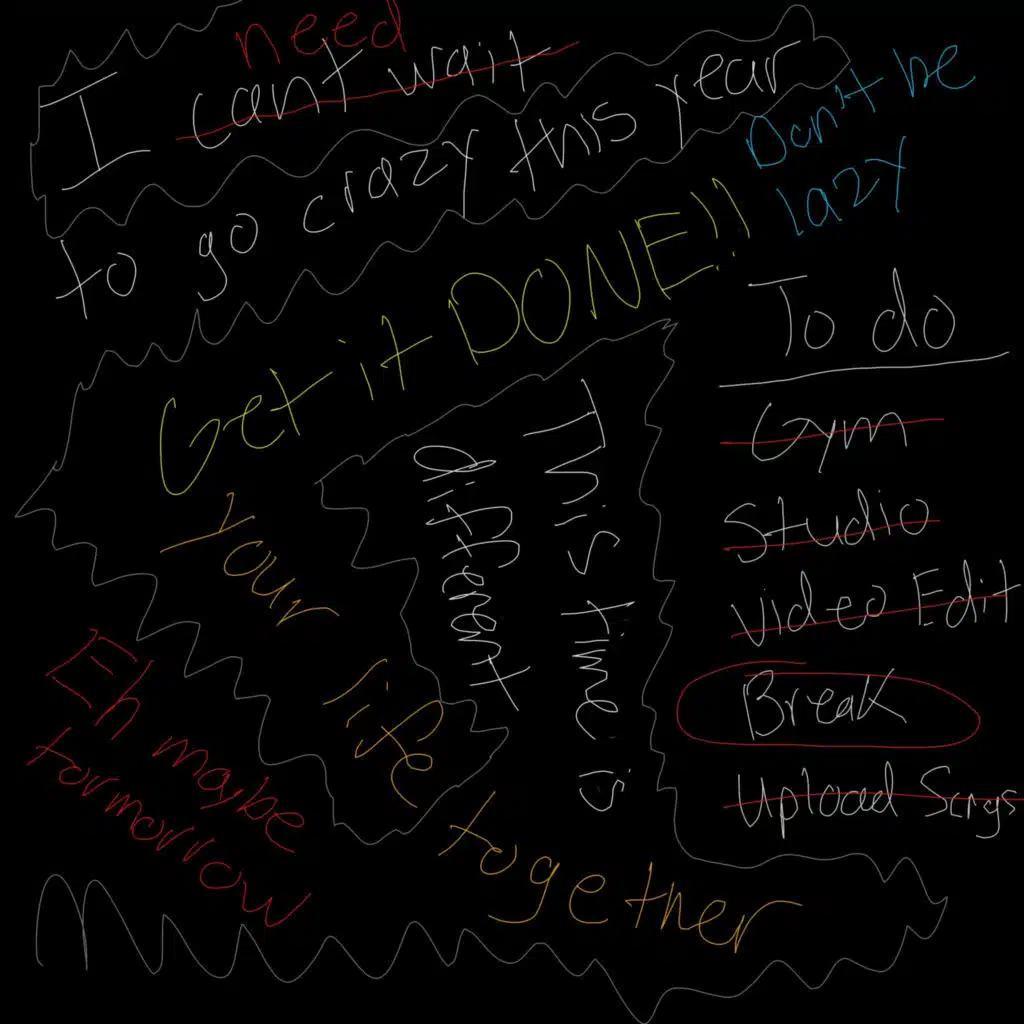 need
I cant wait
to go crazy this year
Don't be
lazy
Get it DONE!!
your life together
This time is
different
Eh maybe
tormorrow
To do
Gym
Studio
Video Edit
Break
Upload Songs